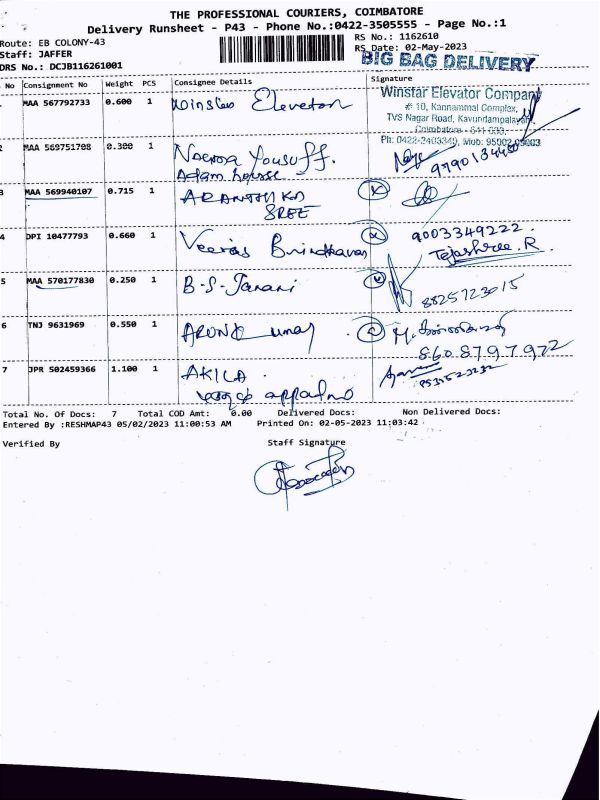 THE PROFESSIONAL COURIERS, COIMBATORE
Delivery Runsheet - P43 - Phone No.:0422-3505555 - Page No.:1
Route: EB COLONY-43
RS No.: 1162610
Staff: JAFFER
RS Date: 02-May-2023
DRS No.: DCJB116261001
BIG BAG DELIVERY
No Consignment No Weight PCS Consignee Details Signature
MAA 567792733 0.600 1 Winstar Elevator
Winstar Elevator Company
# 10, Kannammal Complex,
TVS Nagar Road, Kavundampalayam,
Coimbatore - 641 030.
Ph: 0422-2403349, Mob: 95002 05003
2 MAA 569751708 0.300 1 Yousuff.
Adam house
3 MAA 569940107 0.715 1
SREE
4 DPI 10477793 0.660 1 Brindhavan 9003349222.
Tejashree.R
5 MAA 570177830 0.250 1 B-S-Janani 8825723015
6 TNJ 9631969 0.550 1 ARUN
8608797972
7 JPR 502459366 1.100 1 AKILA
Total No. Of Docs: 7 Total COD Amt: 0.00 Delivered Docs: Non Delivered Docs:
Entered By :RESHMAP43 05/02/2023 11:00:53 AM Printed On: 02-05-2023 11:03:42
Verified By Staff Signature